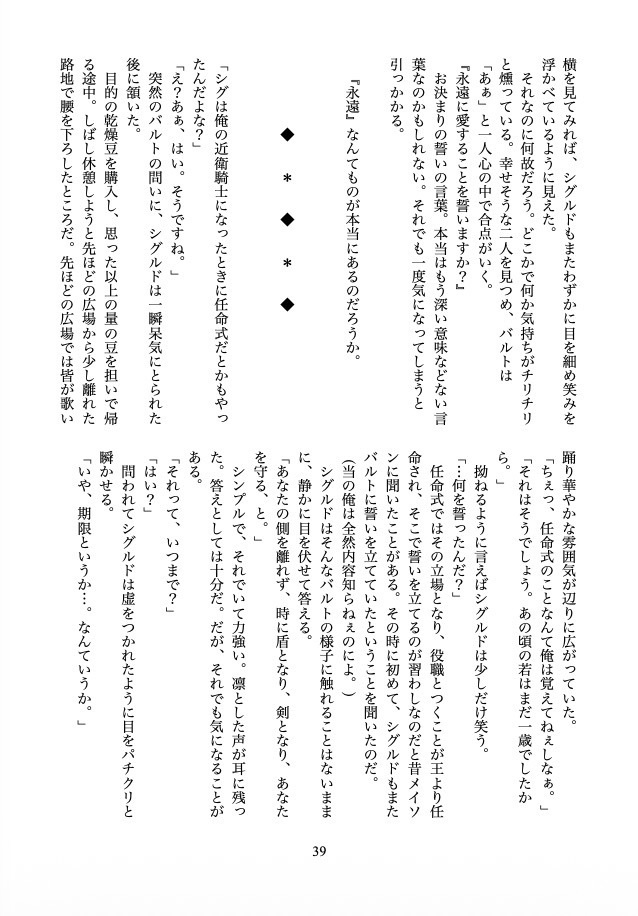 横を見てみれば、シグルドもまたわずかに目を細め笑みを
浮かべているように見えた。
それなのに何故だろう。どこかで何か気持ちがチリチリ
と燻っている。幸せそうな二人を見つめ、バルトは
「あぁ」と一人心の中で合点がいく。
『永遠に愛することを誓いますか?』
お決まりの誓いの言葉。本当はもう深い意味などない言
葉なのかもしれない。それでも一度気になってしまうと
引っかかる。
『永遠』なんてものが本当にあるのだろうか。
◆ * ◆ * ◆
「シグは俺の近衛騎士になったときに任命式だとかもやっ
たんだよな?」
「え?あぁ、はい。そうですね。」
突然のバルトの問いに、シグルドは一瞬呆気にとられた
後に頷いた。
目的の乾燥豆を購入し、思った以上の量の豆を担いで帰
る途中。しばし休憩しようと先ほどの広場から少し離れた
路地で腰を下ろしたところだ。先ほどの広場では皆が歌い
踊り華やかな雰囲気が辺りに広がっていた。
「ちぇっ、任命式のことなんて俺は覚えてねぇしなぁ。」
「それはそうでしょう。あの頃の若はまだ一歳でしたか
ら。」
拗ねるように言えばシグルドは少しだけ笑う。
「…何を誓ったんだ?」
任命式ではその立場となり、役職とつくことが王より任
命され、そこで誓いを立てるのが習わしなのだと昔メイソ
ンに聞いたことがある。その時に初めて、シグルドもまた
バルトに誓いを立てていたということを聞いたのだ。
(当の俺は全然内容知らねぇのによ。)
シグルドはそんなバルトの様子に触れることはないまま
に、静かに目を伏せて答える。
「あなたの側を離れず、時に盾となり、剣となり、あなた
を守る、と。」
シンプルで、それでいて力強い。凛とした声が耳に残っ
た。答えとしては十分だ。だが、それでも気になることが
ある。
「それって、いつまで?」
「はい?」
問われてシグルドは虚をつかれたように目をパチクリと
瞬かせる。
「いや、期限というか…。なんていうか。」
39